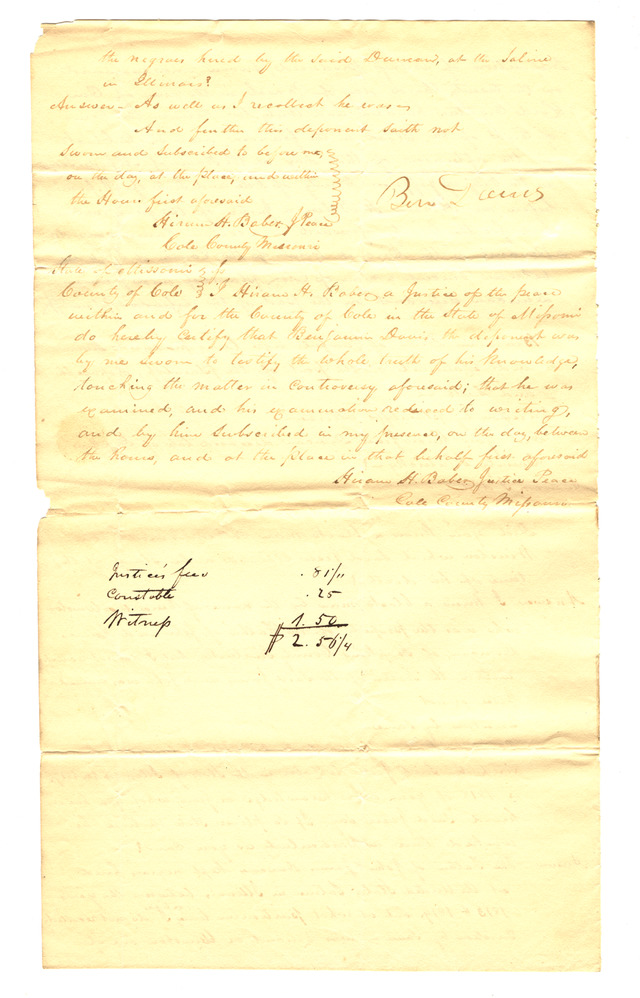 the negroes hired by the said Duncan, at the Saline
in Illinois?
Answer - As well as I recollect he was
And further this deponent saith not
Sworn and Subscribed to before me,
on the day, at the place, and within
the Hours first aforesaid
Ben Davis
Hiram H. Baber J Peace
Cole County Missouri
State of Missouri
County of Cole I Hiram H. Baber a Justice of the peace
within and for the County of Cole in the State of Missouri
do hereby certify that Benjamin Davis the deponent was
by me sworn to testify the whole truth of his knowledge,
touching the matter in controversy aforesaid; that he was
examined, and his examination reduced to writing,
and by him subscribed in my presence, on the day, between
the hours, and at the place in that behalf first aforesaid
Hiram H. Baber Justice Peace
Cole County Missouri
Justice's fees .81/4
Constable .25
Witness 1.50
$2.56/4